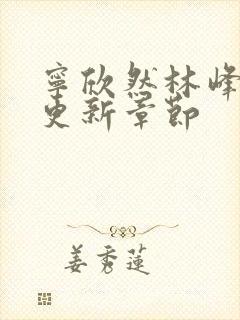 寧欣然林峰
更新章節
姜秀蓮